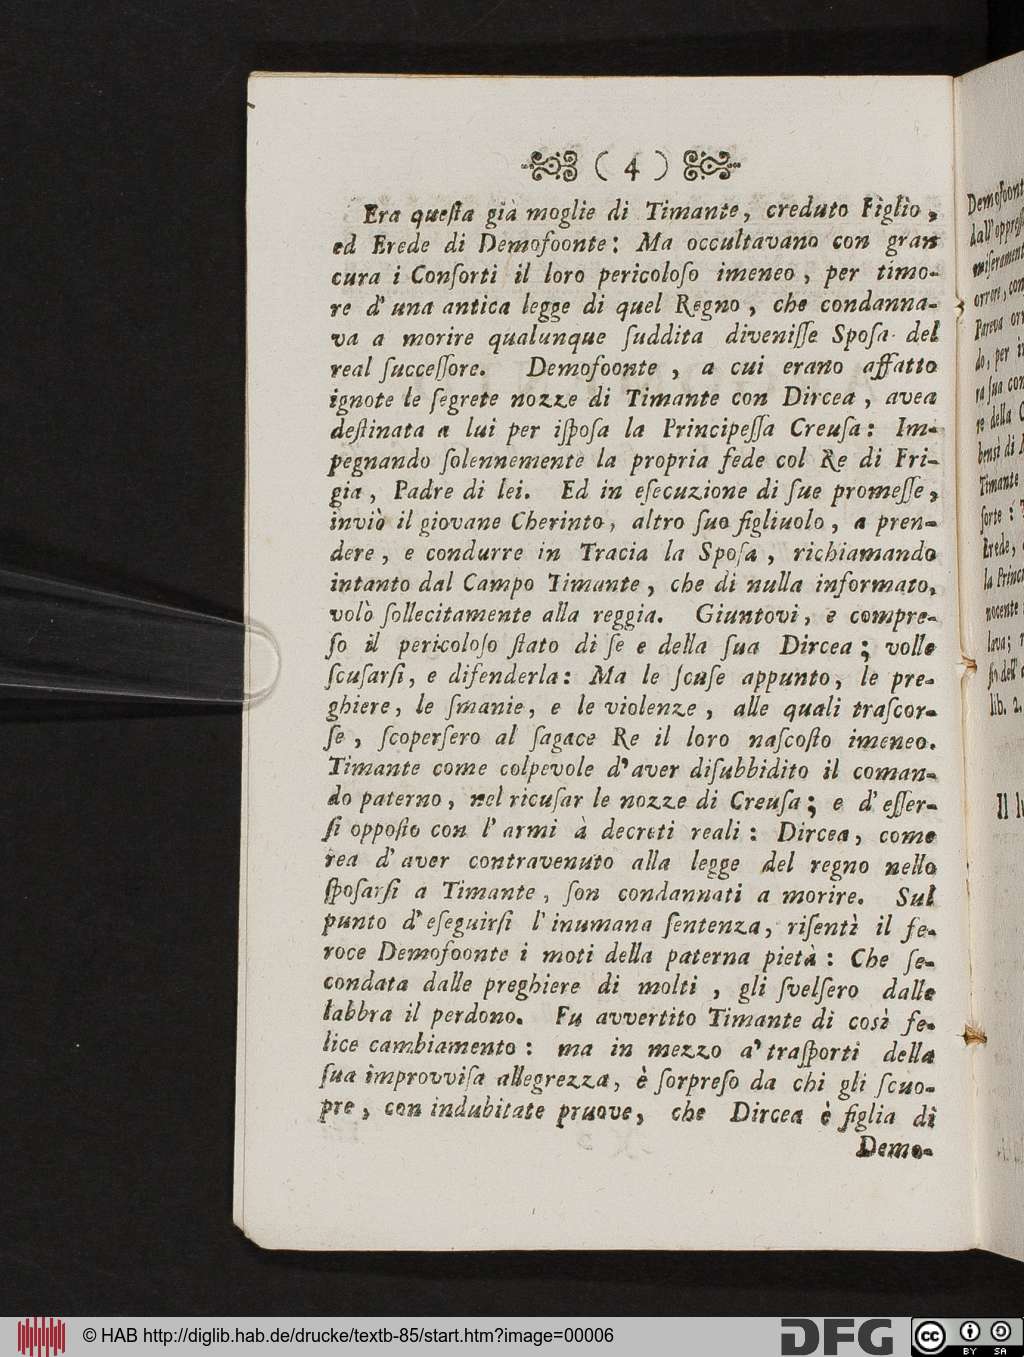 ( 4 )
Era queſta già moglie di Timante, creduto Figlio,
ed Erede di Demofoonte: Ma occultavano con gran
cura i Conſorti il loro pericoloſo imeneo, per timo-
re d'una antica legge di quel Regno, che condanna-
va a morire qualunque ſuddita diveniſſe Spoſa del
real ſucceſſore. Demofoonte, a cui erano affatto
ignote le ſegrete nozze di Timante con Dircea, avea
deſtinata a lui per iſpoſa la Principeſſa Creuſa: Im-
pegnando ſolennemente la propria fede col Re di Fri-
gia, Padre di lei. Ed in eſecuzione di ſue promeſſe,
inviò il giovane Cherinto, altro ſuo figliuolo, a pren-
dere, e condurre in Tracia la Spoſa, richiamando
intanto dal Campo Timante, che di nulla informato,
volò ſollecitamente alla reggia. Giuntovi, e compre-
ſo il pericoloſo ſtato di ſe e della ſua Dircea; volle
ſcuſarſi, e difenderla: Ma le ſcuſe appunto, le pre-
ghiere, le ſmanie, e le violenze, alle quali traſcor-
ſe, ſcoperſero al ſagace Re il loro naſcoſto imeneo.
Timante come colpevole d'aver diſubbidito il coman-
do paterno, nel ricuſar le nozze di Creuſa; e d'eſſer-
ſi oppoſto con l'armi à decreti reali: Dircea, come
rea d'aver contravenuto alla legge del regno nello
ſpoſarſi a Timante, ſon condannati a morire. Sul
punto d'eſeguirſi l'inumana ſentenza, riſentì il fe-
roce Demofoonte i moti della paterna pietà: Che ſe-
condata dalle preghiere di molti, gli ſvelſero dalle
labbra il perdono. Fu avvertito Timante di così fe-
lice cambiamento: ma in mezzo a' traſporti della
ſua improvviſa allegrezza, è ſorpreſo da chi gli ſcuo-
pre, con indubitate pruove, che Dircea è figlia di
Demo-
Demofoont
dall'oppreſſ
miſerament
orrore, con
Pareva orr
do, per i
ra ſua con
re della C
bensì di
Timante
ſorte:
Erede,
la Princ
nocente
lava;
ſo dell'
lib. 2.
Il l
© HAB http://diglib.hab.de/drucke/textb-85/start.htm?image=00006
DFG
cc BY SA